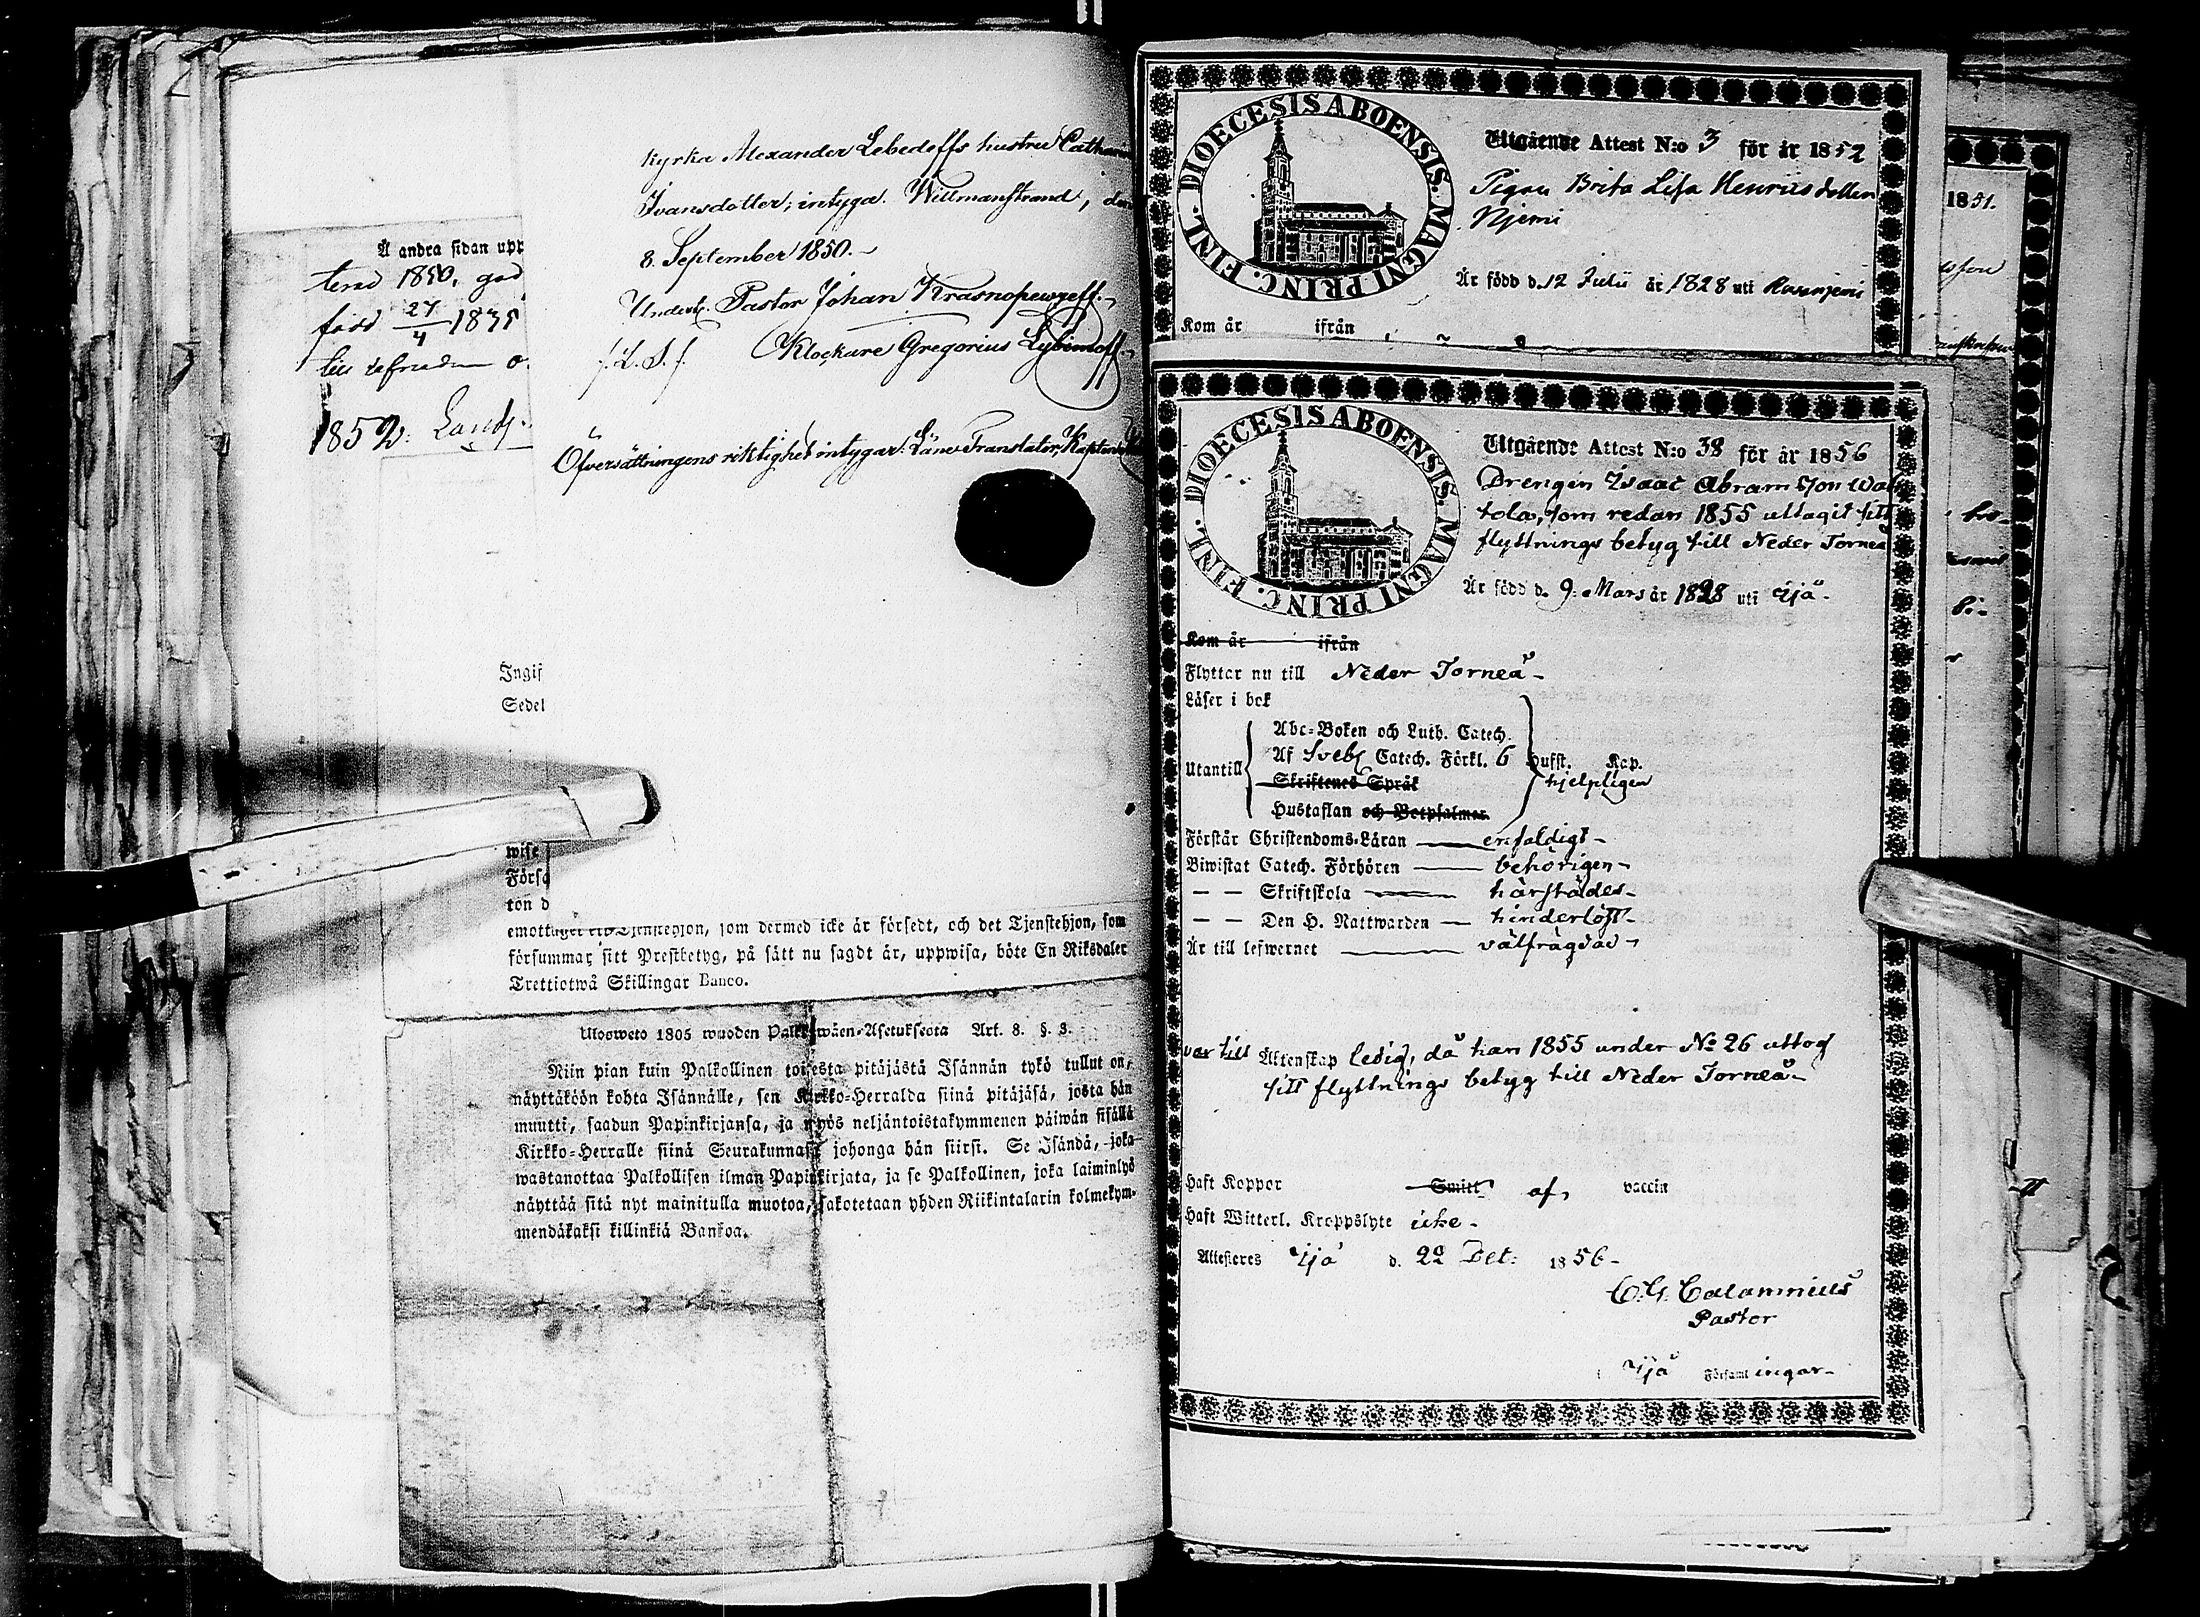 kyrka Alexander Lebedeffs hustru Catharin
Ivansdotter, intyga. Willmanstrand, den
8. September 1850.-
Underst. Pastor Johan Krasnopewzeff.
/:L.S./. Klockare Gregorius Lybimoff
Öfversättningens riktighet intygar: Läne Translator, Kapten
Å andra sidan upp
terad 1850, god
född 27/4 1835
till lefnaden o.
1852.
Ingif
Sedel
wise
Förso
ton d
emottager ett Tjenstehjon, som dermed icke är försedt, och det Tjenstehjon, som
försummar sitt Prestbetyg, på sätt nu sagdt är, uppwisa, böte En Riksdaler
Trettiotwå Skillingar Banco.
Ulosweto 1805 wuoden Palkkawäen-Asetuksesta Art. 8. §. 3.
Niin pian kuin Palkollinen toisesta pitäjästä Isännän tykö tullut on,
näyttäköön kohta Isännälle, sen Kirkko-Herralda siinä pitäjäsä, josta hän
muutti, saadun Papinkirjansa, ja myös neljäntoistakymmenen päiwän sisällä
Kirkko-Herralle siinä Seurakunnasa johonga hän siirsi. Se Isändä, joka
wastanottaa Palkollisen ilman Papinkirjata, ja se Palkollinen, joka laiminlyö
näyttää sitä nyt mainitulla muotoa, sakotetaan yhden Riikintalarin kolmekym-
mendäkaksi killinkiä Bankoa.
DIOECESIS ABOENSIS. MAGNI PRINC. FINL.
Utgående Attest N:o 3 för år 1852
Pigan Brita Lisa Henriksdotter
Njemi
Är född d. 12 Julii år 1828 uti
Kom år ifrån
1851.
DIOECESIS ABOENSIS. MAGNI PRINC. FINL.
Utgående Attest N:o 38 för år 1856
Drengen Isaac Abramsson Wal
tola, som redan 1855 uttagit sitt
flyttnings betyg till Neder Torneå
Är född d. 9. Mars år 1828 uti Ijå-
Kom år ifrån
Flyttar nu till Neder Torneå-
Läser i bok
Utantill
Abc-Boken och Luth. Catech.
Af Sveb. Catech. Förkl. 6 Hufst. Kap.
Skriftenes Språk hjelpligen
Hustaflan och Botpsalmer.
Förstår Christendoms-Läran enfaldigt-
Biwistat Catech. Förhören behörigen-
— — Skriftskola härstädes-
— — Den H. Nattwarden hinderlöst-
Är till lefwernet välfrägdad-
var till Äktenskap ledig, då han 1855 under No 26 uttog
sitt flyttnings betyg till Neder Torneå-
Haft Koppor Smitt af, vaccin
Haft Witterl. Kroppslyte icke-
Attesteres Ijå d. 22 Det: 1856-
C. G. Calamnius
Pastor
Ijå Församlingar-